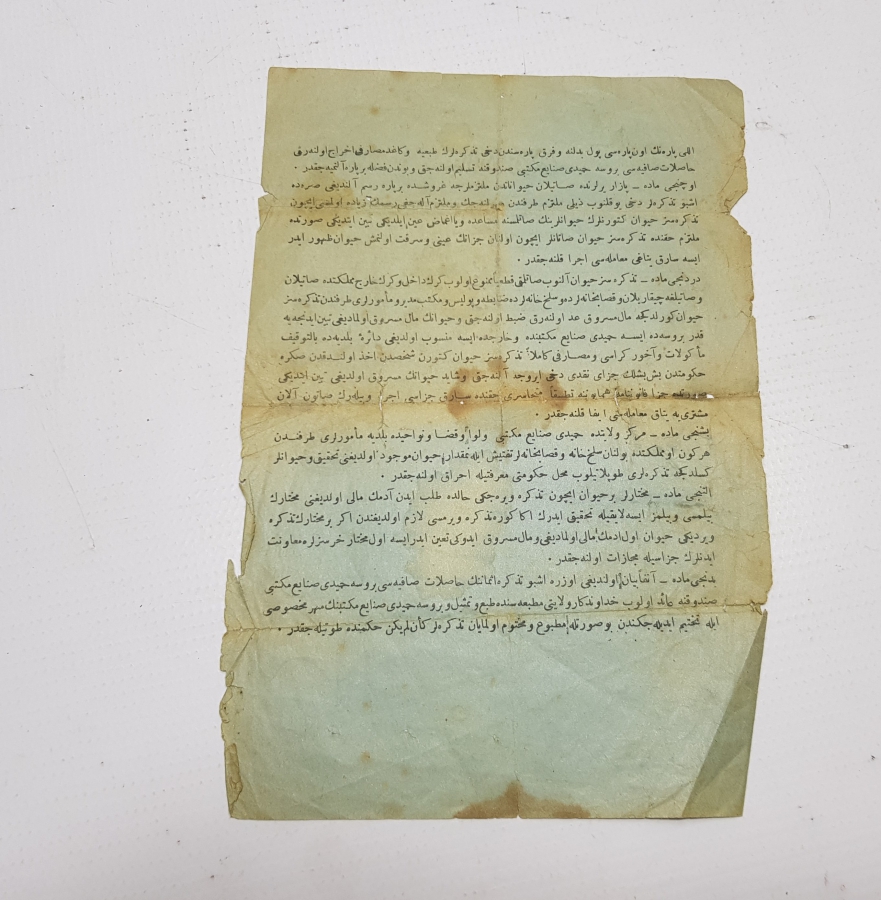 اللی پاره‌نك اون پاره‌سی پول بدلنه وقرق پاره‌سندن دخی تذكره‌لرك طبعیه وكاغد مصارفی اخراج اولنه‌رق
حاصلات صافیه‌سی بروسه حمیدی صنایع مكتبی صندوقنه تسلیم اولنه‌جق و بوندن فضله برپاره آلنمیه‌جقدر .
اوچنجی ماده ــ پازار یرلرنده صاتیلان حیواناتدن ملتزملرجه غروشده برپاره رسم آلندیغی صره‌ده
اشبو تذكره‌لر دخی یوقلنوب ذیلی ملتزم طرفندن اولنه‌جك و ملتزم آله‌جغی رسمك زیاده اولمسی ایچون
تذكره‌سز حیوان كتورنلرك حیوانلرینك صاتلمسنه مساعده ویا اغماض عین ایلدیكی تبین ایتدیكی صورتده
ملتزم حقنده تذكره‌سز حیوان صاتانلر ایچون اولنان جزانك عینی و سرقت اولنمش حیوان ظهور ایدر
ایسه سارق یتاغی معامله‌سی اجرا قلنه‌جقدر .
دردنجی ماده ــ تذكره‌سز حیوان آلنوب صاتلمق قطعیاً ممنوع اولوب كرك داخل وكرك خارج مملكتده صاتیلان
وصاتیلغه چیقاریلان وقصابخانه‌لرده و سلخ خانه‌لرده ضابطه و پولیس و مكتب مدیر و مأمورلری طرفندن تذكره‌سز
حیوان كورلدكجه مال مسروق عد اولنه‌رق ضبط اولنه‌جق و حیوانك مال مسروق اولمادیغی تبین ایدنجه‌یه
قدر بروسه‌ده ایسه حمیدی صنایع مكتبنده وخارجده ایسه منسوب اولدیغی دائرهٔ بلدیه‌ده بالتوقیف
مأكولات و آخور كراسی و مصارفی كاملاً تذكره‌سز حیوان كتورن شخصدن اخذ اولندقدن صكره
حكومتدن بش بشلك جزای نقدی دخی آلنه‌جق و شاید حیوانك مسروق اولدیغی تبین ایتدیكی
صورتده جزا قانوننامهٔ همایوننه تطبیقاً متجاسری حقنده سارق جزاسی اجرا و بیله‌رك صاتون آلان
مشتری‌یه یتاق معامله‌سی ایفا قلنه‌جقدر .
بشنجی ماده ــ مركز ولایتده حمیدی صنایع مكتبی ولوا وقضا ونواحیده بلدیه مأمورلری طرفندن
هركون او مملكتده بولنان سلخ خانه و قصابخانه‌لر تفتیش ایله نمقدار حیوان موجود اولدیغنی تحقیق و حیوانلر
كسلدكجه تذكره‌لری طوپلاتیلوب محل حكومتی معرفتیله احراق اولنه‌جقدر .
التنجی ماده ــ مختارلر بر حیوان ایچون تذكره ویره‌جكی حالده طلب ایدن آدمك مالی اولدیغنی مختارك
بیلمسی و بیلمز ایسه لایقیله تحقیق ایدرك اكا كوره تذكره ویرمسی لازم اولدیغندن اكر بر مختارك تذكره
ویردیكی حیوان اول ادمك مالی اولمادیغی و مال مسروق ایدوكی تعین ایدر ایسه اول مختار خرسزلره معاونت
ایدنلرك جزاسیله مجازات اولنه‌جقدر .
یدنجی ماده ــ آنفاً بیان اولندیغی اوزره اشبو تذكره اثماننك حاصلات صافیه‌سی بروسه حمیدی صنایع مكتبی
صندوقنه عائد اولوب خداوندكار ولایتی مطبعه‌سنده طبع و تمثیل و بروسه حمیدی صنایع مكتبنك مهر مخصوصی
ایله تختیم ایدیله‌جكندن بو صورتله مطبوع و مختوم اولمایان تذكره‌لر كأن لم یكن حكمنده طوتیله‌جقدر .